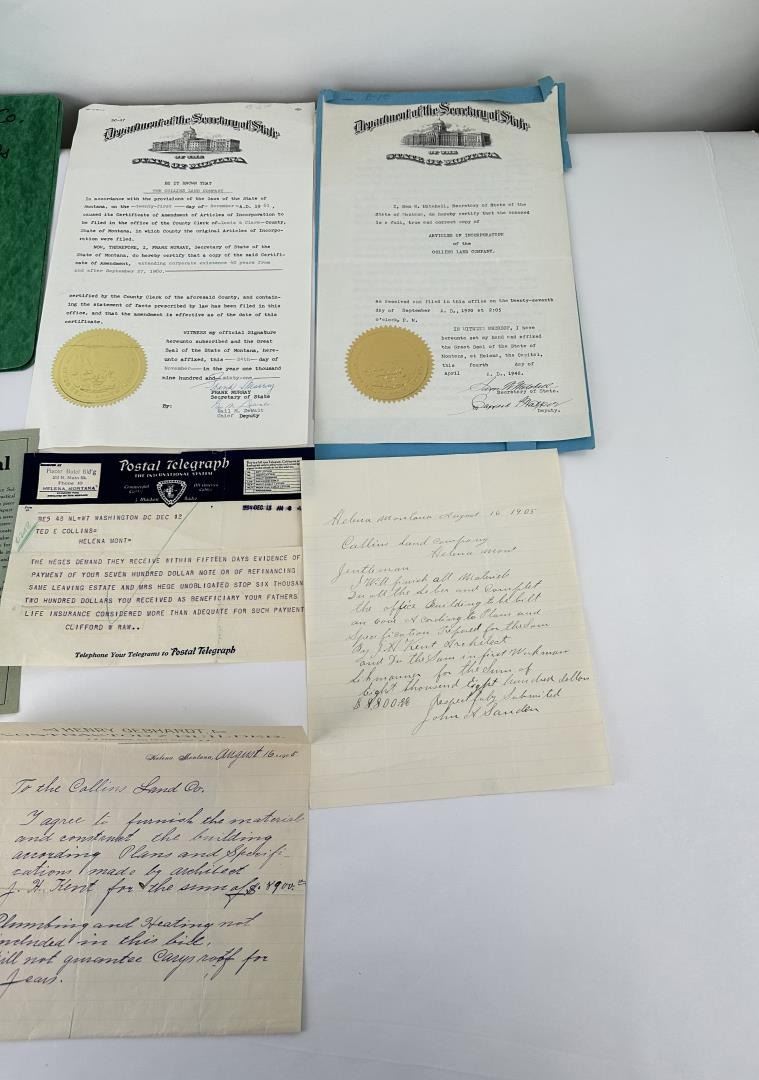 Co.
DC-47
Department of the Secretary of State
OF THE
STATE OF MONTANA
BE IT KNOWN THAT
THE COLLINS LAND COMPANY
In accordance with the provisions of the laws of the State of
Montana, on the twenty-first day of November A.D. 1961,
caused its Certificate of Amendment of Articles of Incorporation to
be filed in the office of the County Clerk of Lewis & Clark County,
State of Montana, in which County the original Articles of Incorpo-
ration were filed.
NOW, THEREFORE, I, FRANK MURRAY, Secretary of State of the
State of Montana, do hereby certify that a copy of the said Certifi-
cate of Amendment, extending corporate existence 40 years from
and after September 27, 1960,
certified by the County Clerk of the aforesaid County, and contain-
ing the statement of facts prescribed by law has been filed in this
office, and that the amendment is effective as of the date of this
certificate.
WITNESS my official Signature
hereunto subscribed and the Great
Seal of the State of Montana, here-
unto affixed, this 24th day of
November in the year one thousand
nine hundred and sixty-one
Frank Murray
FRANK MURRAY
Secretary of State
By:
Gail M. DeWalt
Chief Deputy
Department of the Secretary of State
OF THE
STATE OF MONTANA
I, Sam W. Mitchell, Secretary of State of the
State of Montana, do hereby certify that the annexed
is a full, true and correct copy of
ARTICLES OF INCORPORATION
of the
COLLINS LAND COMPANY,
as received and filed in this office on the twenty-seventh
day of September A. D., 1920 at 2:05
o'clock, P. M.
IN WITNESS WHEREOF, I have
hereunto set my hand and affixed
the Great Seal of the State of
Montana, at Helena, the Capital,
this fourth day of
April A. D., 1940.
Sam W. Mitchell
Secretary of State.
Deputy.
Placer Hotel Bld'g
22 N. Main St.
Phone 19
HELENA, MONTANA
Postal Telegraph
THE INTERNATIONAL SYSTEM
Commercial Cables
All America Cables
Mackay Radio
1934 DEC 13 AM
ME5 48 NL=WT WASHINGTON DC DEC 12
TED E COLLINS=
HELENA MONT=
THE HEGES DEMAND THEY RECEIVE WITHIN FIFTEEN DAYS EVIDENCE OF
PAYMENT OF YOUR SEVEN HUNDRED DOLLAR NOTE OR OF REFINANCING
SAME LEAVING ESTATE AND MRS HEGE UNOBLIGATED STOP SIX THOUSAN
TWO HUNDRED DOLLARS YOU RECEIVED AS BENEFICIARY YOUR FATHERS
LIFE INSURANCE CONSIDERED MORE THAN ADEQUATE FOR SUCH PAYMENT
CLIFFORD W RAW..
Telephone Your Telegrams to Postal Telegraph
Helena Montana August 16 1905
Collins Land Company
Helena Mont
Jentleman
I Will furnish all Materials
Du all the Leber and Complet
the office Building to be bilt
on Acording to Plans and
Specification Prepared for the Sam
By J.H. Kent Architect
and Du the Sam in first Workman
Schmanner for the Sum of
Eight thousand Eight hundred dollars
$8800.00 Respectfuly Submited
John A Sanden
HENRY GEBHARDT,
CONTRACTOR & BUILDER.
Helena Montana, August 16 1905
To the Collins Land Co.
I agree to furnish the material
and construct the building
according Plans and Specifi-
cations made by architect
J. H. Kent for the sum of $8900.00
Plumbing and Heating not
included in this bill.
will not gurantee Carys roof for
Years.